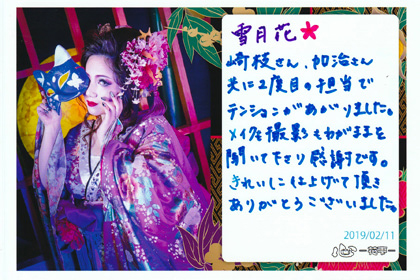 雪月花
崎枝さん、加治さん
共に2度目の担当で
テンションがあがりました。
メイクも撮影もわがままを
聞いて下さり感謝です。
きれいに仕上げて頂き
ありがとうございました。
2019/02/11